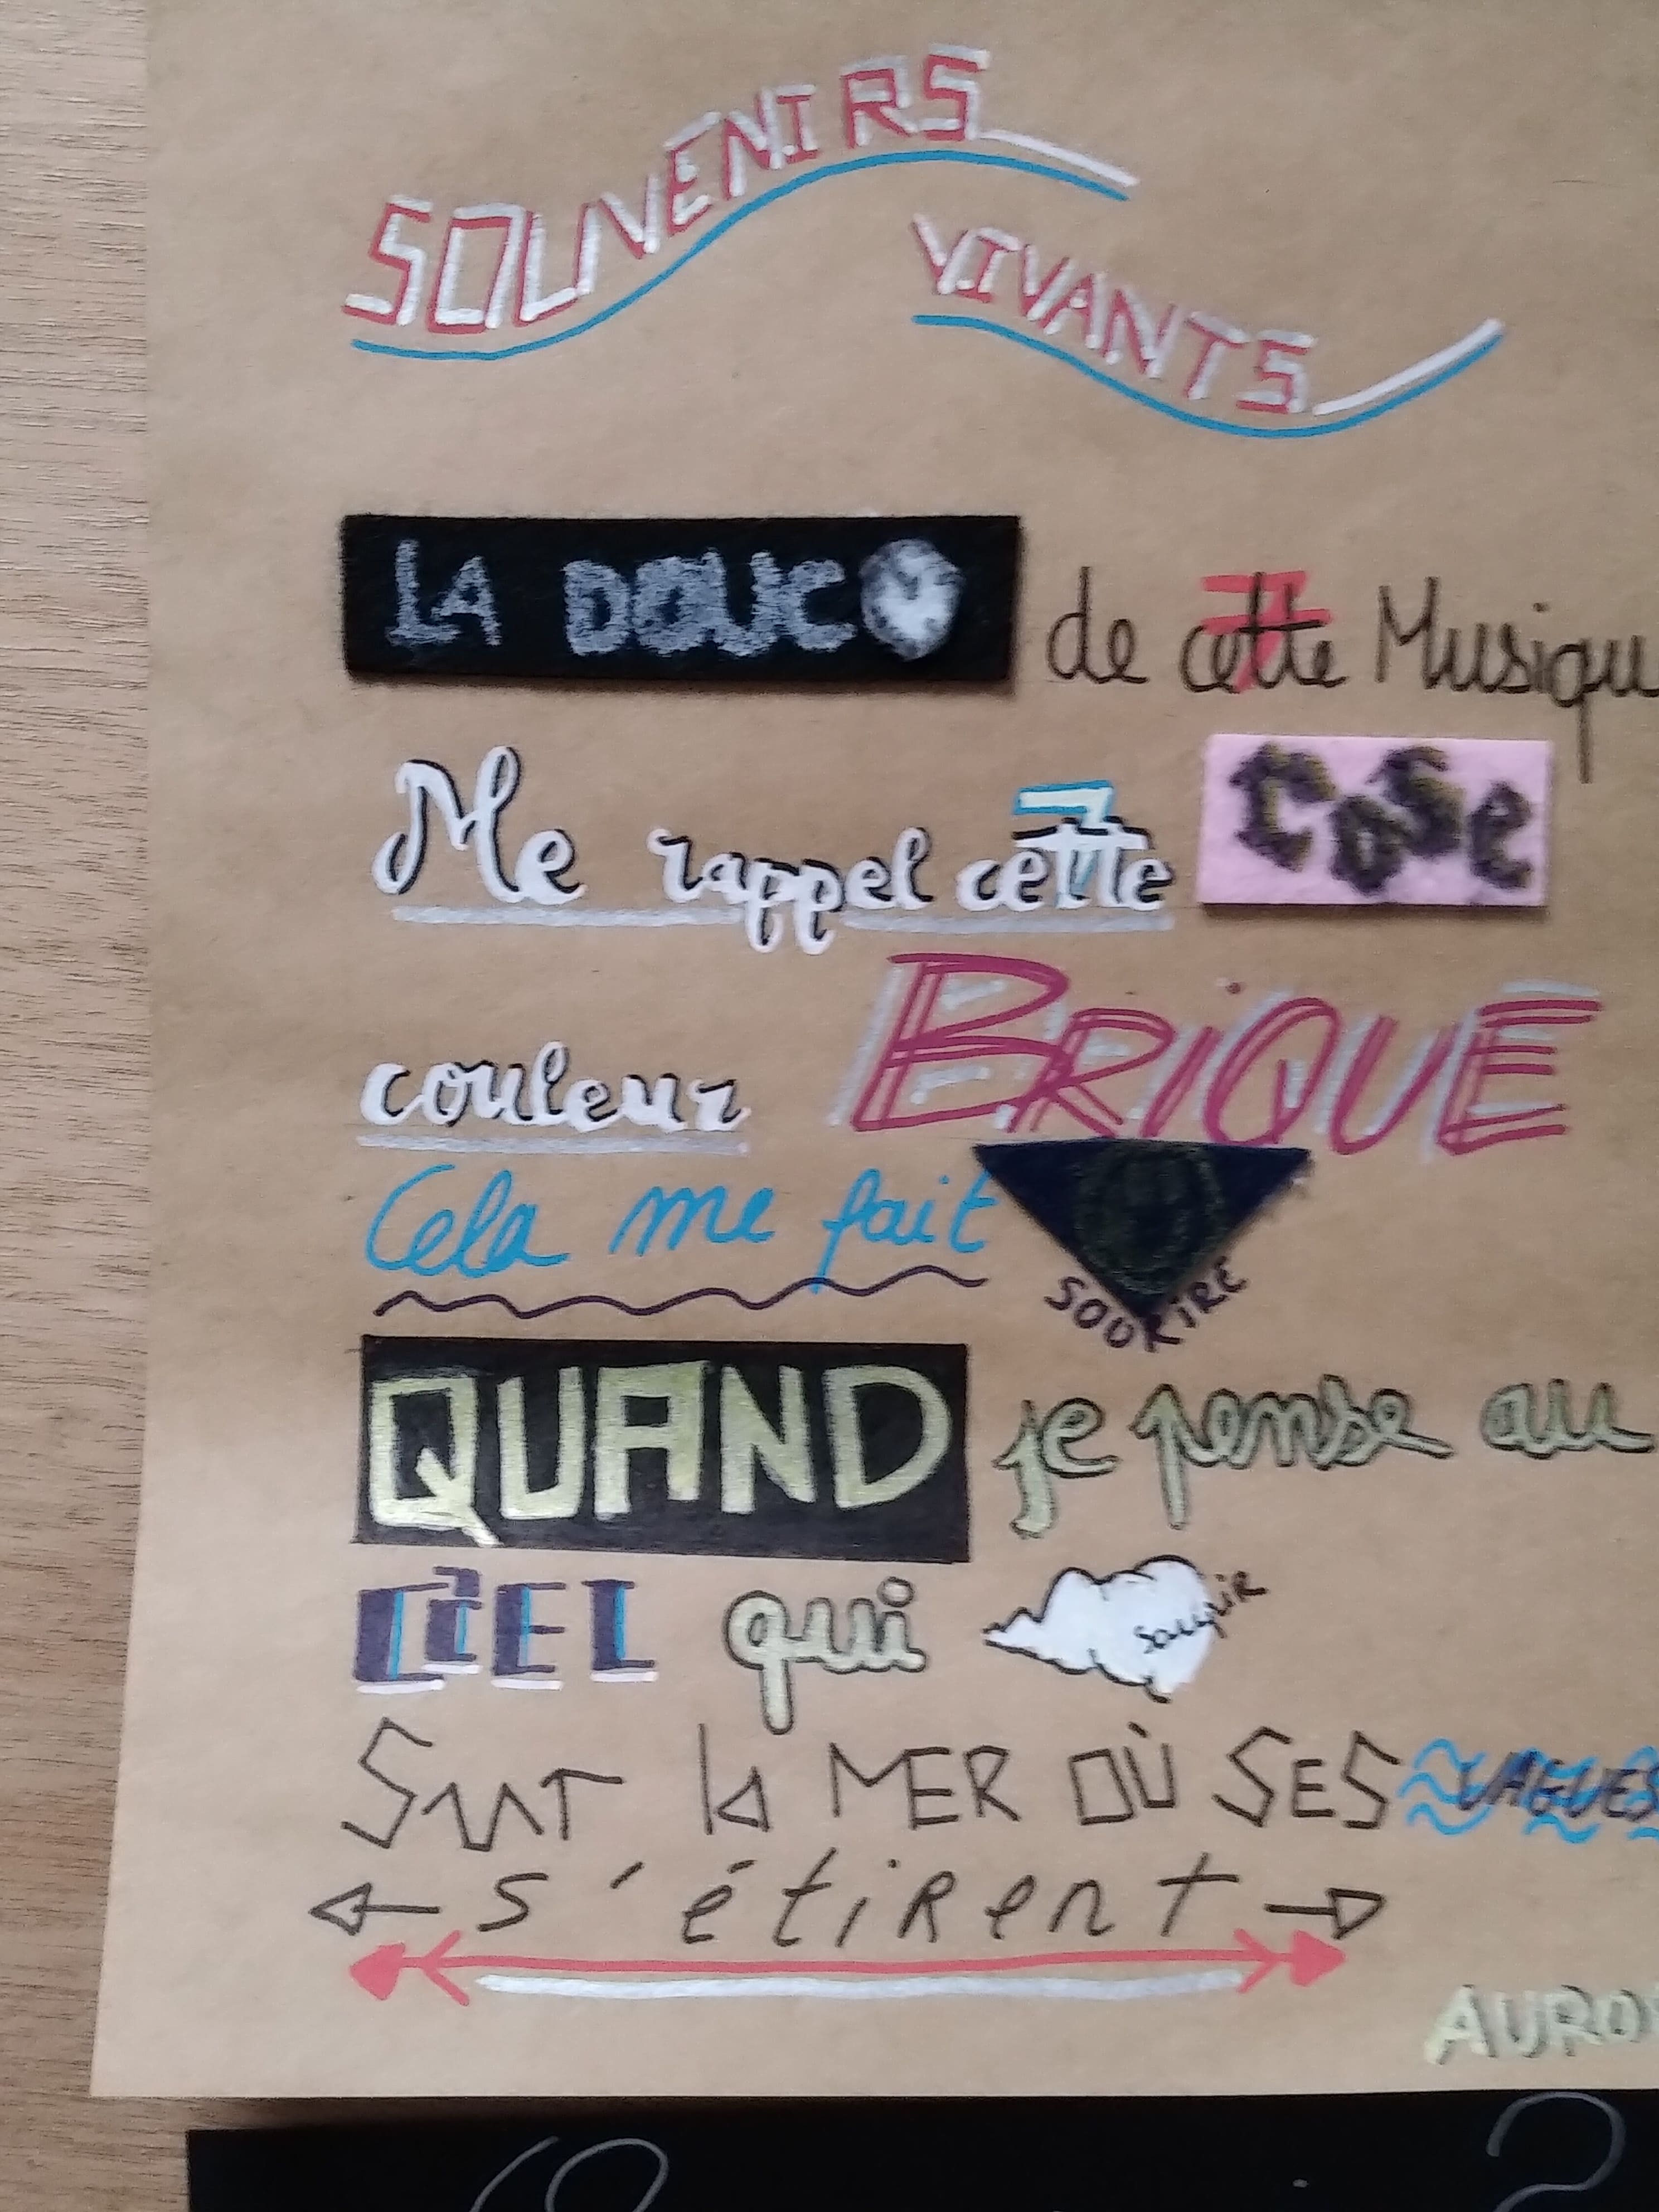 SOUVENIRS
VIVANTS
LA DOUC de cette Musiqu
Me rappel cette rose
couleur BRiQUE
Cela me fait
SOURiRE
QUAND je pense au
CiEL qui soupir
Sur la MER OÙ SES VAGUES
s'étirent
AURO